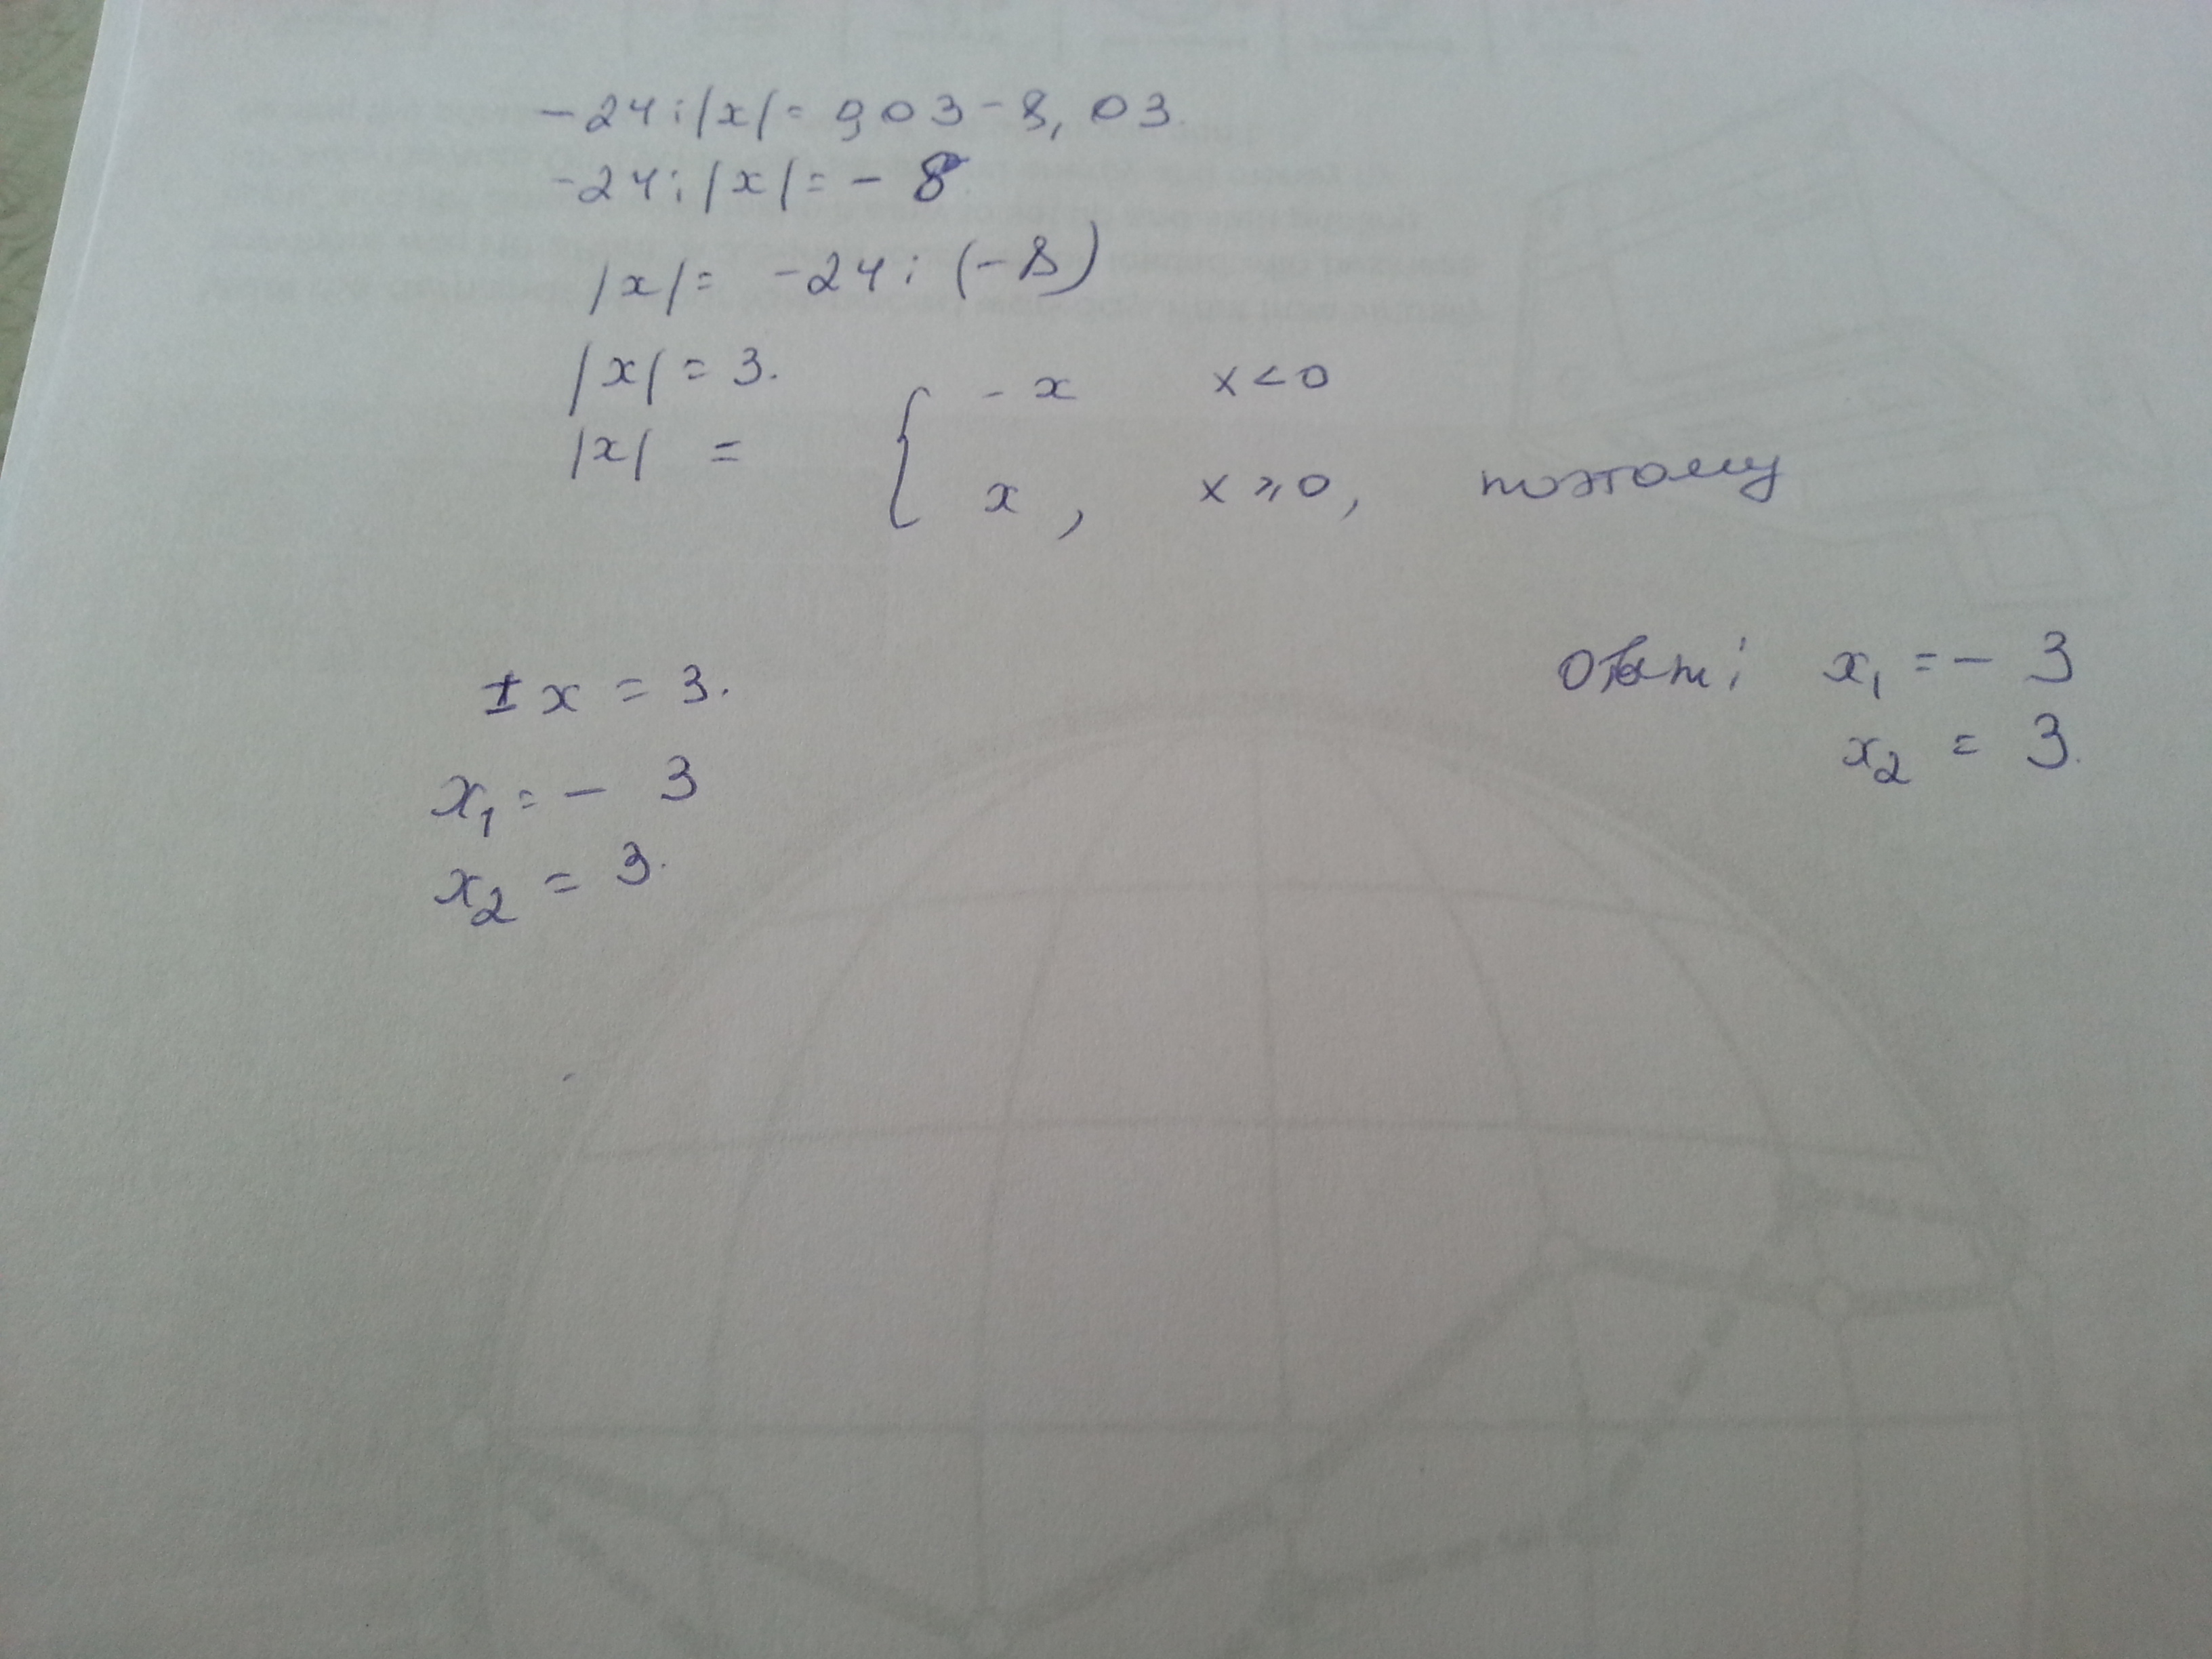 -24:|x|= 903-8,03.
-24:|x|= - 8
|x|= -24:(-8)
|x|= 3.
|x| = { -x x<0
x, x⩾0, поэтому
±x = 3.
x₁ = - 3
x₂ = 3.
Ответ: x₁ = - 3
x₂ = 3.